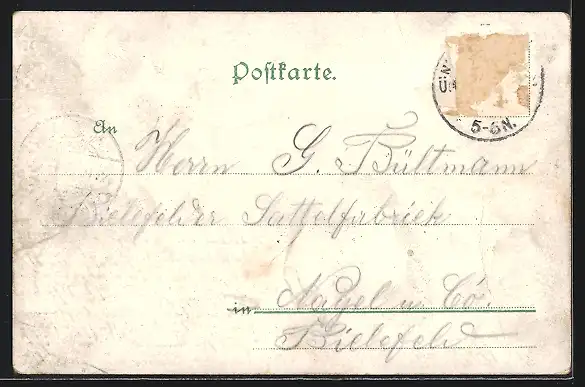 Postkarte.
5-6N.
An Herrn G. Bültmann
Bielefelder Sattelfabriek
in Nagel u. Co.
Bielefeld